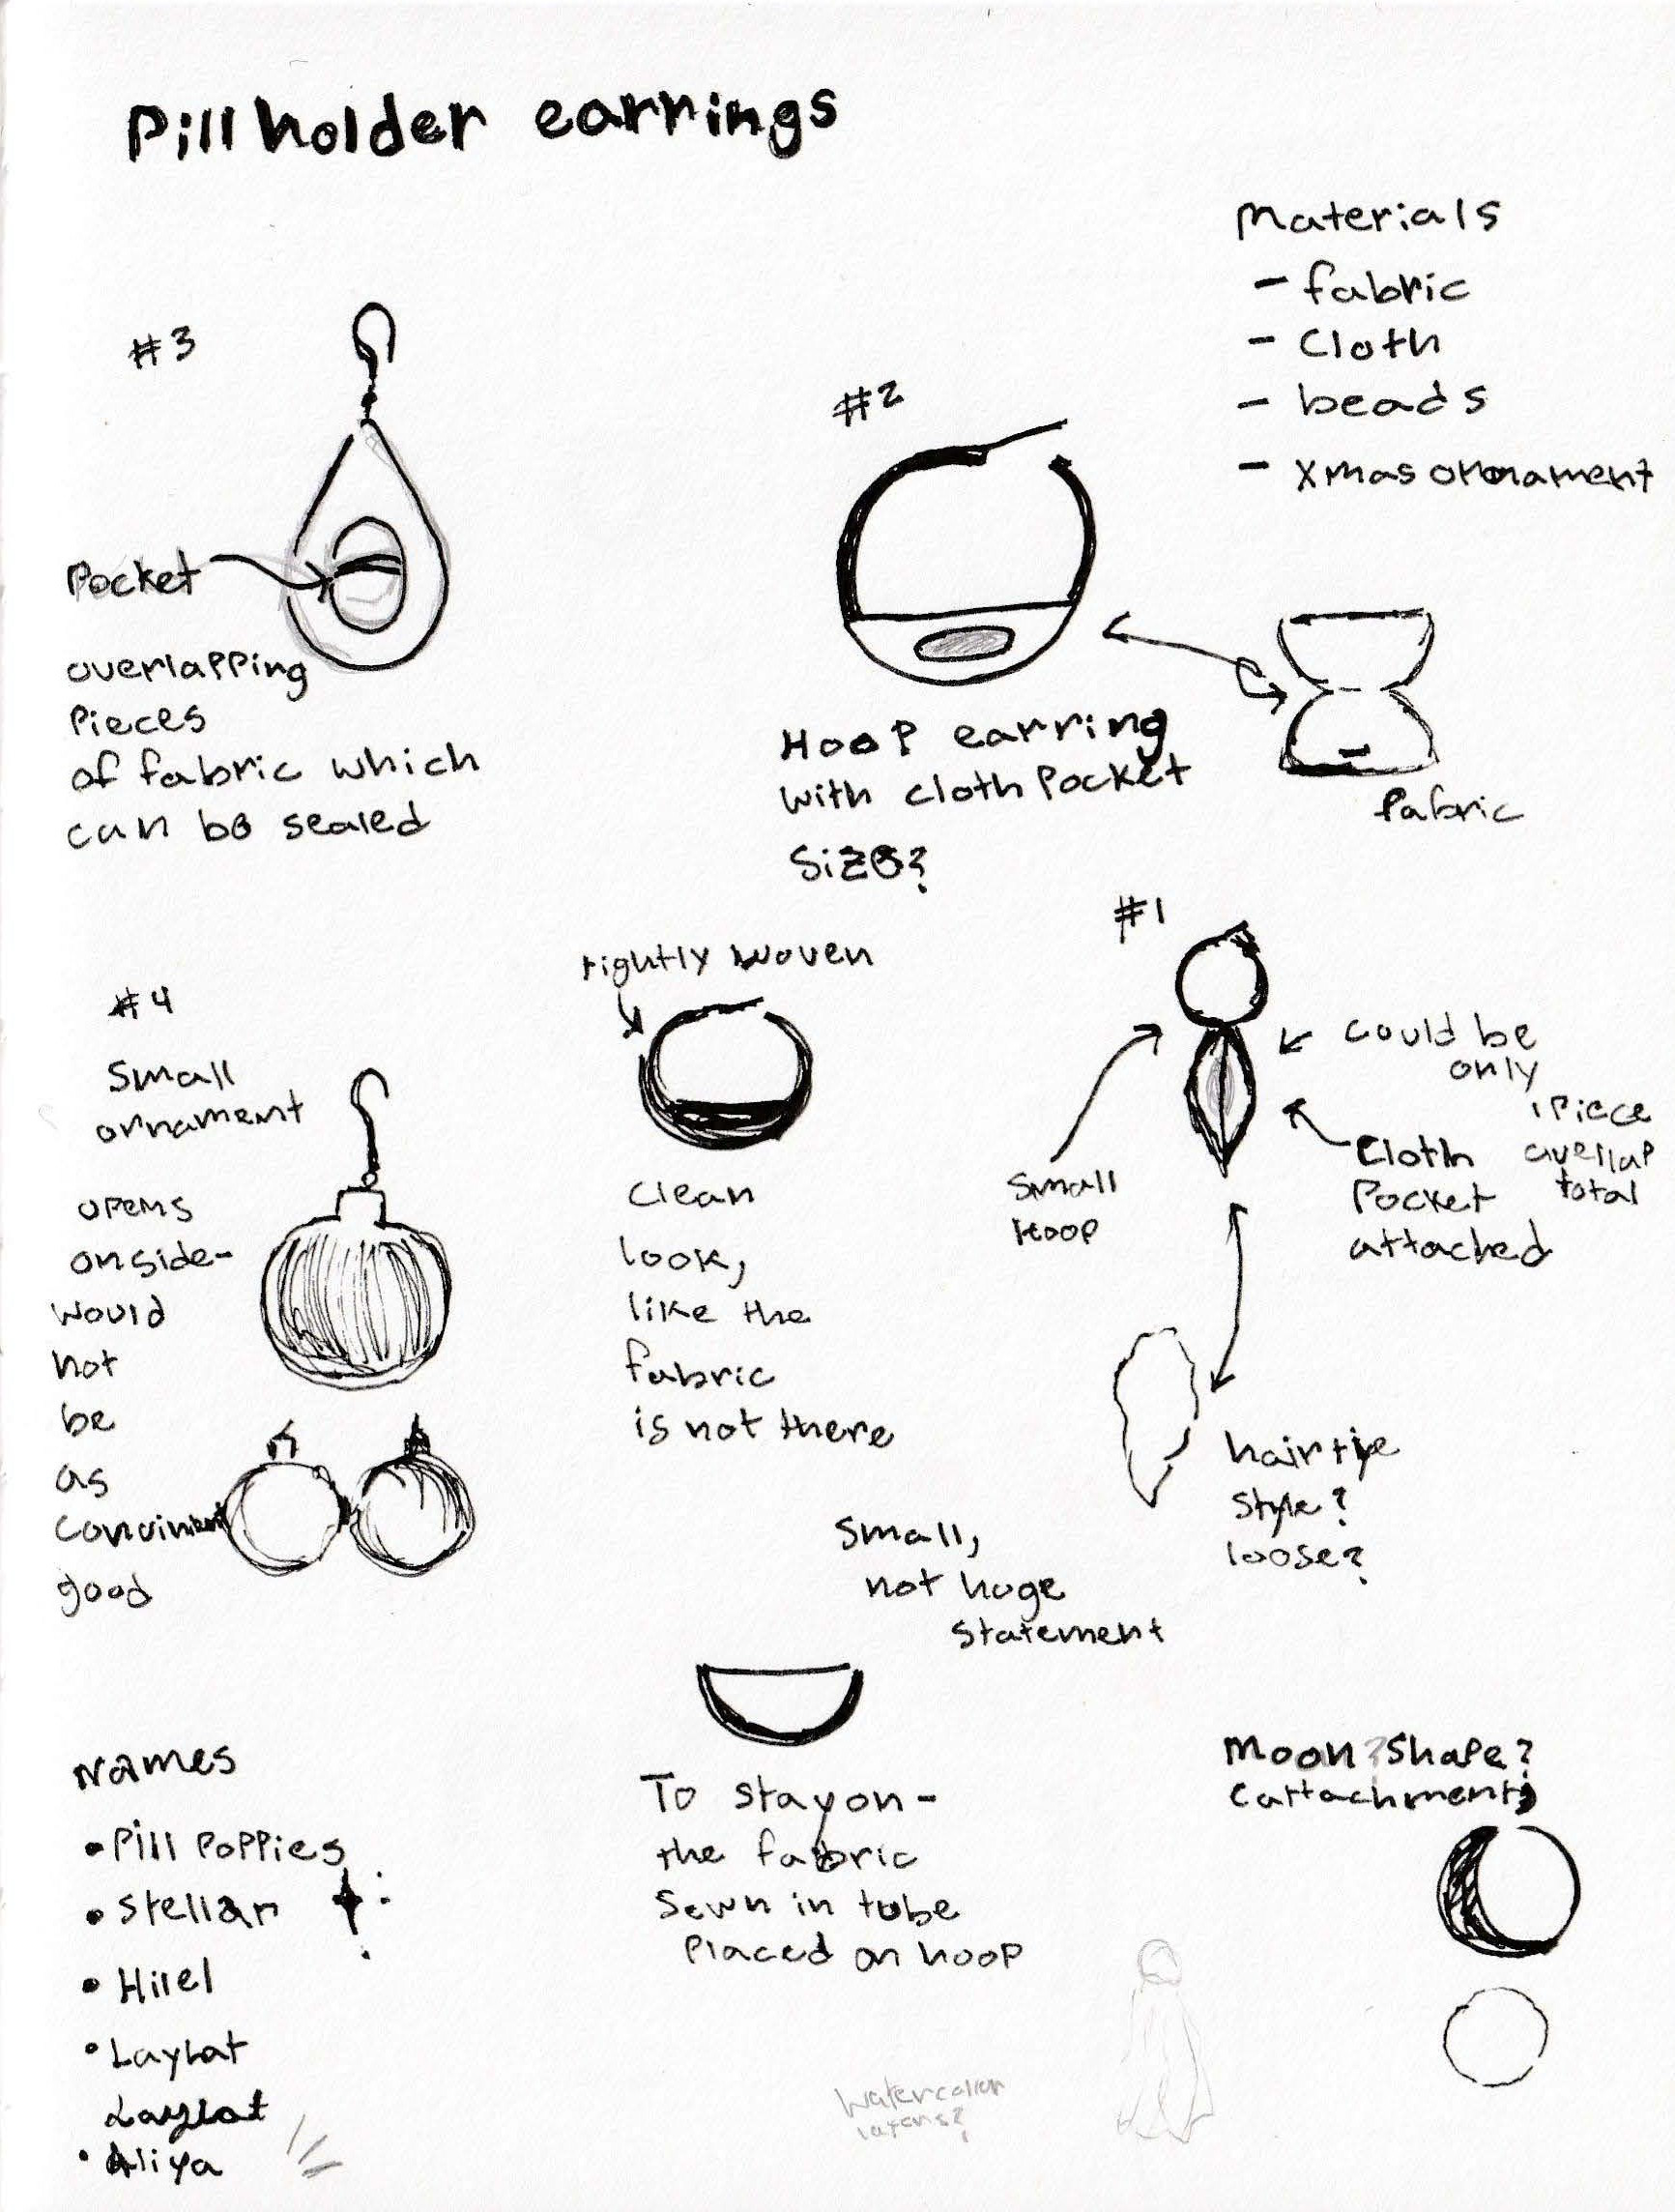 Pill holder earrings
Materials
- fabric
- Cloth
- beads
- Xmas ornament
#3
Pocket
overlapping
Pieces
of fabric which
can be sealed
#2
Hoop earring
with cloth Pocket
Size?
fabric
#4
Small
ornament
opens
on side-
would
not
be
as
good
tightly woven
Clean
look,
like the
fabric
is not there
#1
Small
Hoop
could be
only
1 Piece
overlap
total
Cloth
Pocket
attached
hair tie
style?
loose?
Small,
not huge
statement
To stay on-
the fabric
Sewn in tube
Placed on hoop
Moon? Shape?
(attachment)
Names
• Pill Poppies
• Stellar
• Hilel
• Laylat
Laylat
• Aliya